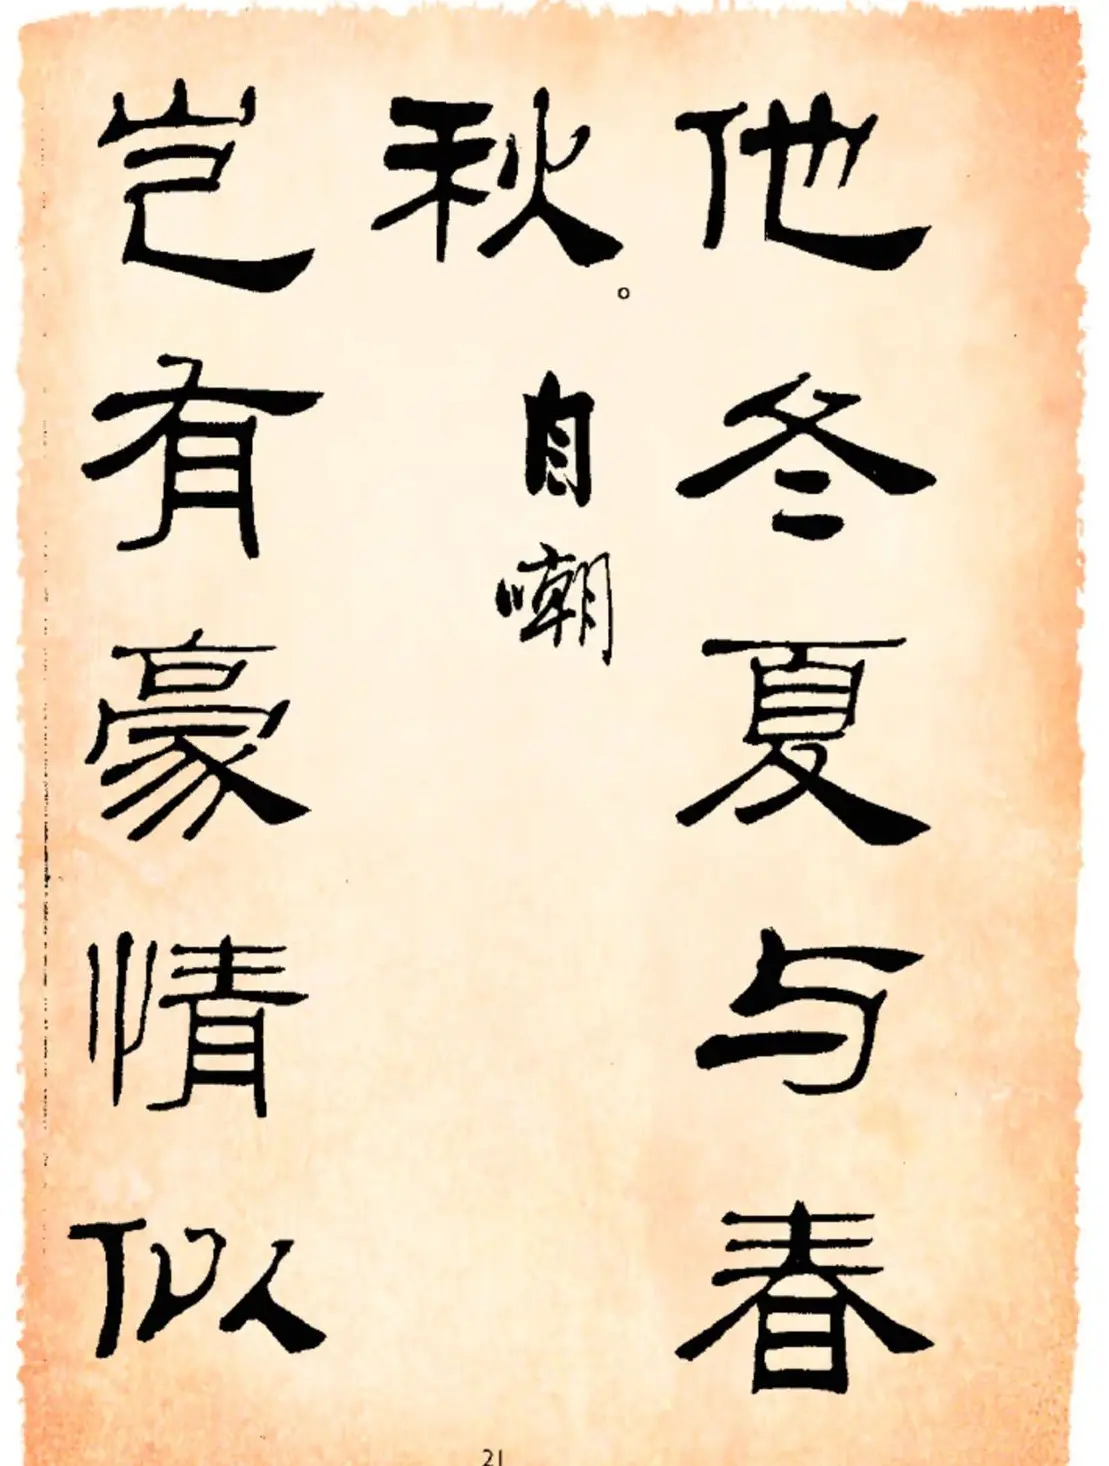 他冬夏与春
秋。
自嘲
岂有豪情似
21